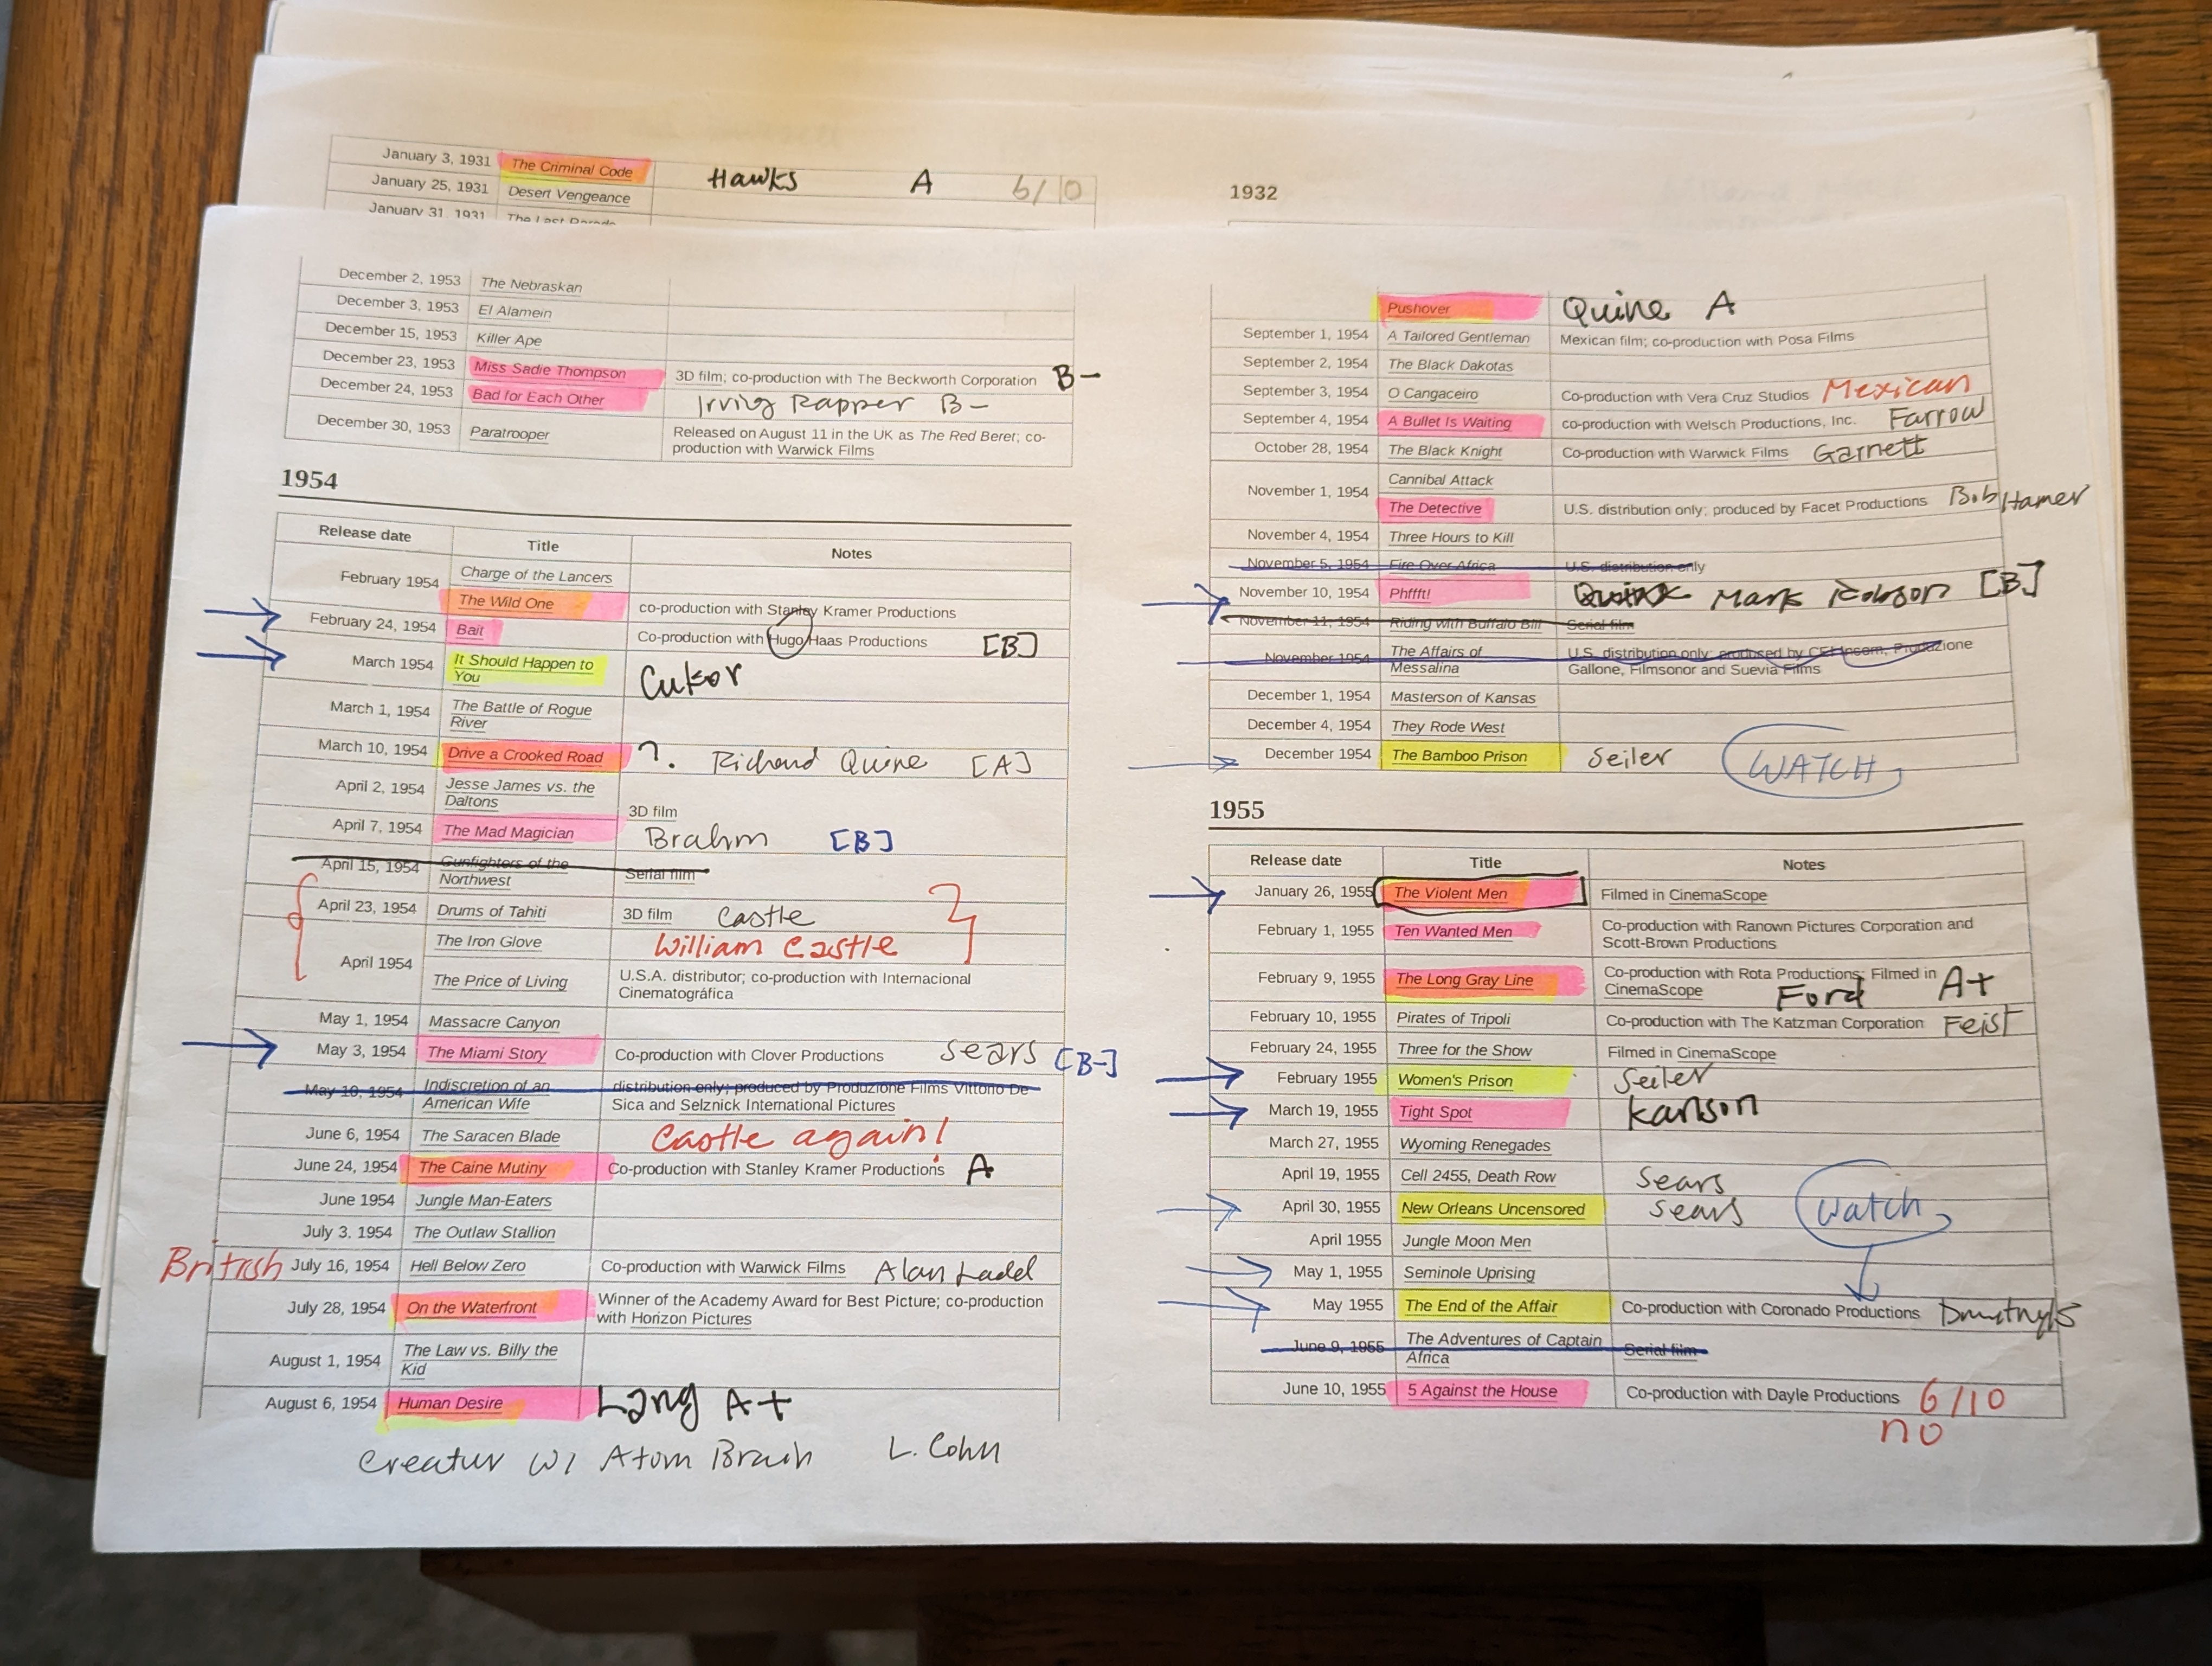 January 3, 1931 The Criminal Code Hawks A 6/10
January 25, 1931 Desert Vengeance
January 31, 1931 The Last Parade
1932
December 2, 1953 The Nebraskan
December 3, 1953 El Alamein
December 15, 1953 Killer Ape
December 23, 1953 Miss Sadie Thompson 3D film; co-production with The Beckworth Corporation B-
December 24, 1953 Bad for Each Other Irving Rapper B-
December 30, 1953 Paratrooper Released on August 11 in the UK as The Red Beret; co-
production with Warwick Films
1954
Release date Title Notes
February 1954 Charge of the Lancers
The Wild One co-production with Stanley Kramer Productions
February 24, 1954 Bait Co-production with Hugo Haas Productions [B]
March 1954 It Should Happen to
You Cukor
March 1, 1954 The Battle of Rogue
River
March 10, 1954 Drive a Crooked Road ?. Richard Quine [A]
April 2, 1954 Jesse James vs. the
Daltons 3D film
April 7, 1954 The Mad Magician Brahm [B]
April 15, 1954 Gunfighters of the
Northwest Serial film
April 23, 1954 Drums of Tahiti 3D film Castle
April 1954 The Iron Glove William Castle
The Price of Living U.S.A. distributor; co-production with Internacional
Cinematográfica
May 1, 1954 Massacre Canyon
May 3, 1954 The Miami Story Co-production with Clover Productions Sears [B-]
May 10, 1954 Indiscretion of an
American Wife distribution only; produced by Produzione Films Vittorio De
Sica and Selznick International Pictures
June 6, 1954 The Saracen Blade Castle again!
June 24, 1954 The Caine Mutiny Co-production with Stanley Kramer Productions A
June 1954 Jungle Man-Eaters
July 3, 1954 The Outlaw Stallion
British July 16, 1954 Hell Below Zero Co-production with Warwick Films Alan Ladd
July 28, 1954 On the Waterfront Winner of the Academy Award for Best Picture; co-production
with Horizon Pictures
August 1, 1954 The Law vs. Billy the
Kid
August 6, 1954 Human Desire Lang A+
Creatur w/ Atom Brain L. Cohn
Pushover Quine A
September 1, 1954 A Tailored Gentleman Mexican film; co-production with Posa Films
September 2, 1954 The Black Dakotas
September 3, 1954 O Cangaceiro Co-production with Vera Cruz Studios Mexican
September 4, 1954 A Bullet Is Waiting co-production with Welsch Productions, Inc. Farrow
October 28, 1954 The Black Knight Co-production with Warwick Films Garnett
November 1, 1954 Cannibal Attack
The Detective U.S. distribution only; produced by Facet Productions Bob Hamer
November 4, 1954 Three Hours to Kill
November 5, 1954 Fire Over Africa U.S. distribution only
November 10, 1954 Phffft! Quine Mark Robson [B]
November 11, 1954 Riding with Buffalo Bill Serial film
November 1954 The Affairs of
Messalina U.S. distribution only; produced by CEI Incom, Produzione
Gallone, Filmsonor and Suevia Films
December 1, 1954 Masterson of Kansas
December 4, 1954 They Rode West
December 1954 The Bamboo Prison Seiler WATCH
1955
Release date Title Notes
January 26, 1955 The Violent Men Filmed in CinemaScope
February 1, 1955 Ten Wanted Men Co-production with Ranown Pictures Corporation and
Scott-Brown Productions
February 9, 1955 The Long Gray Line Co-production with Rota Productions; Filmed in
CinemaScope Ford A+
February 10, 1955 Pirates of Tripoli Co-production with The Katzman Corporation Feist
February 24, 1955 Three for the Show Filmed in CinemaScope
February 1955 Women's Prison Seiler
March 19, 1955 Tight Spot Karlson
March 27, 1955 Wyoming Renegades
April 19, 1955 Cell 2455, Death Row Sears
April 30, 1955 New Orleans Uncensored Sears Watch
April 1955 Jungle Moon Men
May 1, 1955 Seminole Uprising
May 1955 The End of the Affair Co-production with Coronado Productions
June 9, 1955 The Adventures of Captain
Africa Serial film
June 10, 1955 5 Against the House Co-production with Dayle Productions 6/10
no